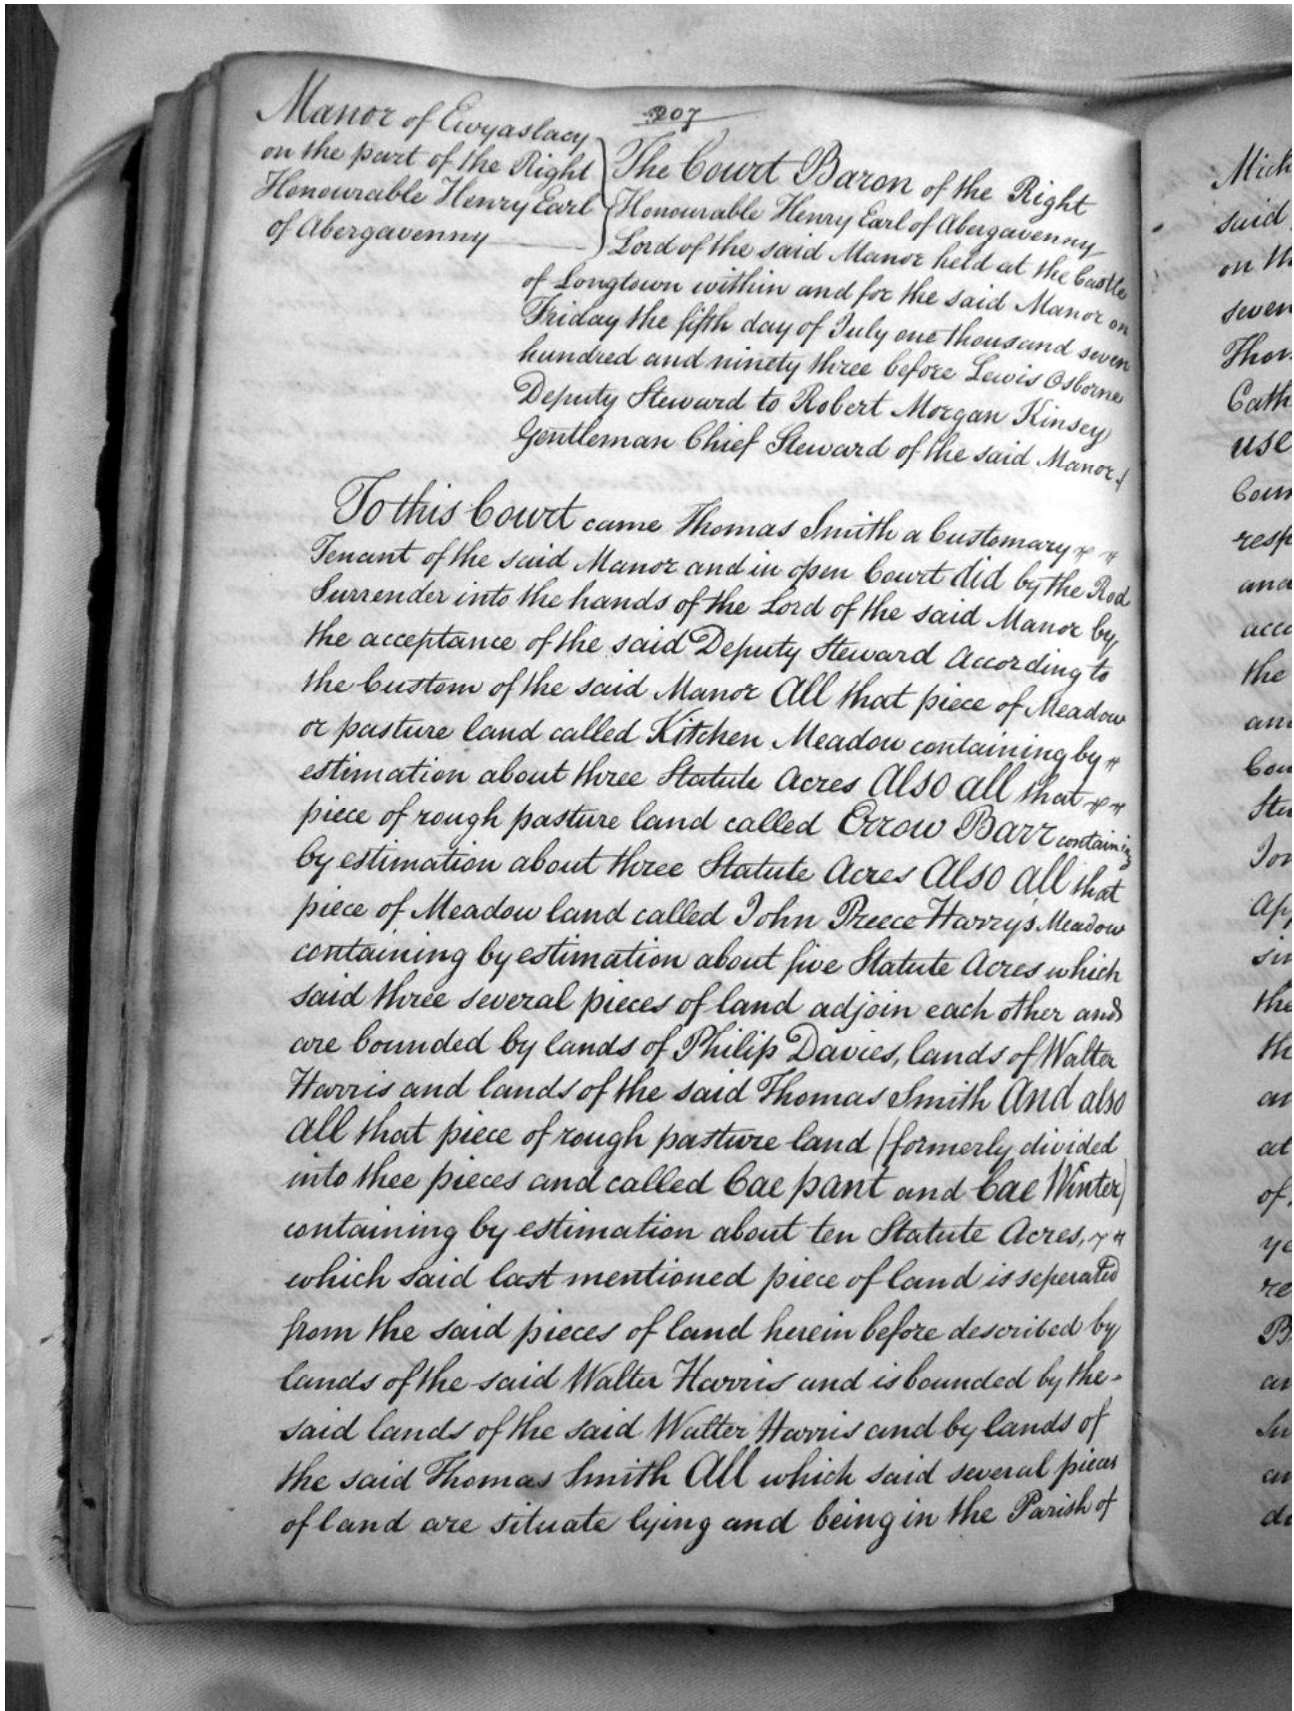 207
Manor of Ewyaslacy
on the part of the Right
Honourable Henry Earl
of Abergavenny
The Court Baron of the Right
Honourable Henry Earl of Abergavenny
Lord of the said Manor held at the Castle
of Longtown within and for the said Manor on
Friday the fifth day of July one thousand seven
hundred and ninety three before Lewis Osborne
Deputy Steward to Robert Morgan Kinsey
Gentleman Chief Steward of the said Manor.
To this Court came Thomas Smith a Customary
Tenant of the said Manor and in open Court did by the Rod
Surrender into the hands of the Lord of the said Manor by
the acceptance of the said Deputy Steward According to
the Custom of the said Manor All that piece of Meadow
or pasture land called Kitchen Meadow containing by
estimation about three Statute Acres Also all that
piece of rough pasture land called Errow Barr containing
by estimation about three Statute Acres Also all that
piece of Meadow land called John Preece Harrys Meadow
containing by estimation about five Statute Acres which
said three several pieces of land adjoin each other and
are bounded by lands of Philip Davies, lands of Walter
Harris and lands of the said Thomas Smith And also
all that piece of rough pasture land (formerly divided
into thee pieces and called Cae pant and Cae Winter)
containing by estimation about ten Statute Acres,
which said last mentioned piece of land is seperated
from the said pieces of land herein before described by
lands of the said Walter Harris and is bounded by the
said lands of the said Walter Harris and by lands of
the said Thomas Smith All which said several pieces
of land are situate lying and being in the Parish of
said
on
seven
use
resp
and
the
the
at
of